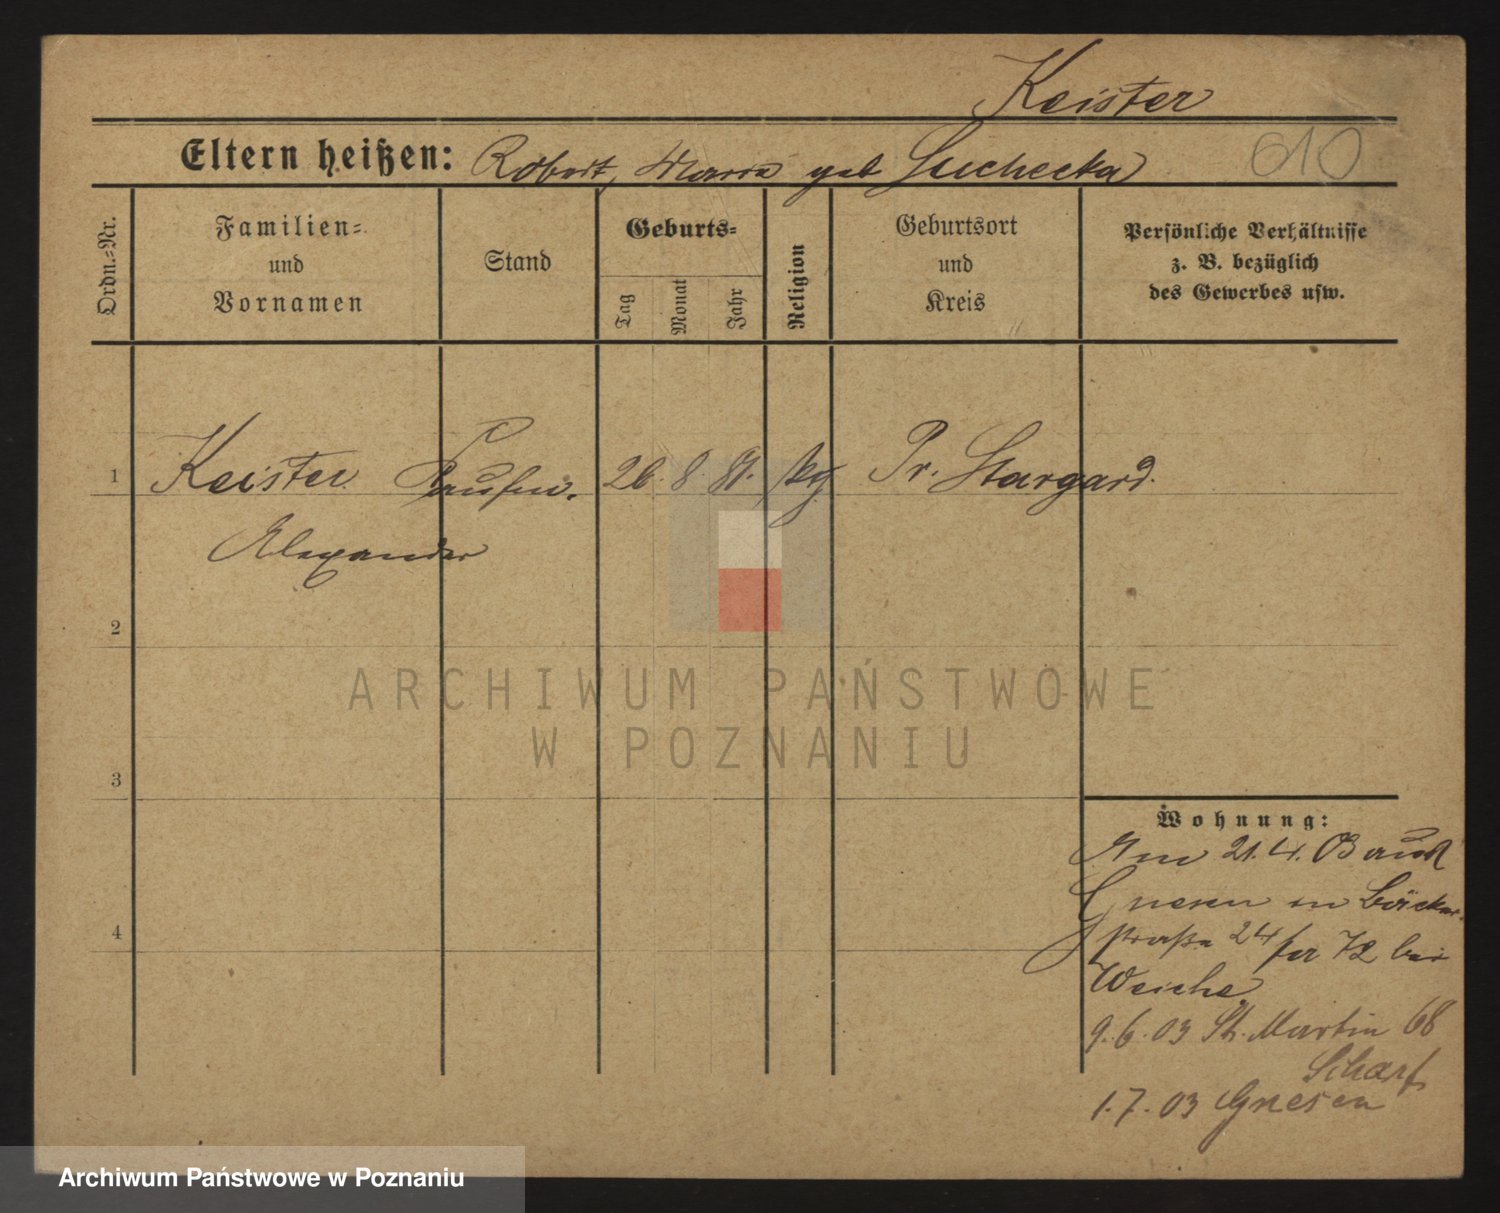 Keister
Eltern heißen: Robert, Maria geb Suchecka
610
Ordn.-Nr.
Familien-
und
Vornamen
Stand
Geburts-
Tag
Monat
Jahr
Religion
Geburtsort
und
Kreis
Persönliche Verhältnisse
z. B. bezüglich
des Gewerbes usw.
1 Keister 26. 8. 81. Pr. Stargard.
Alexander
2
3
4
Wohnung:
Am 21. 4. 03 aus
Gnesen in Bäcker-
straße 24 72 bei
Weiche
9. 6. 03 St. Martin 68
Scharf
1. 7. 03 Gnesen
ARCHIWUM PAŃSTWOWE
W POZNANIU
Archiwum Państwowe w Poznaniu